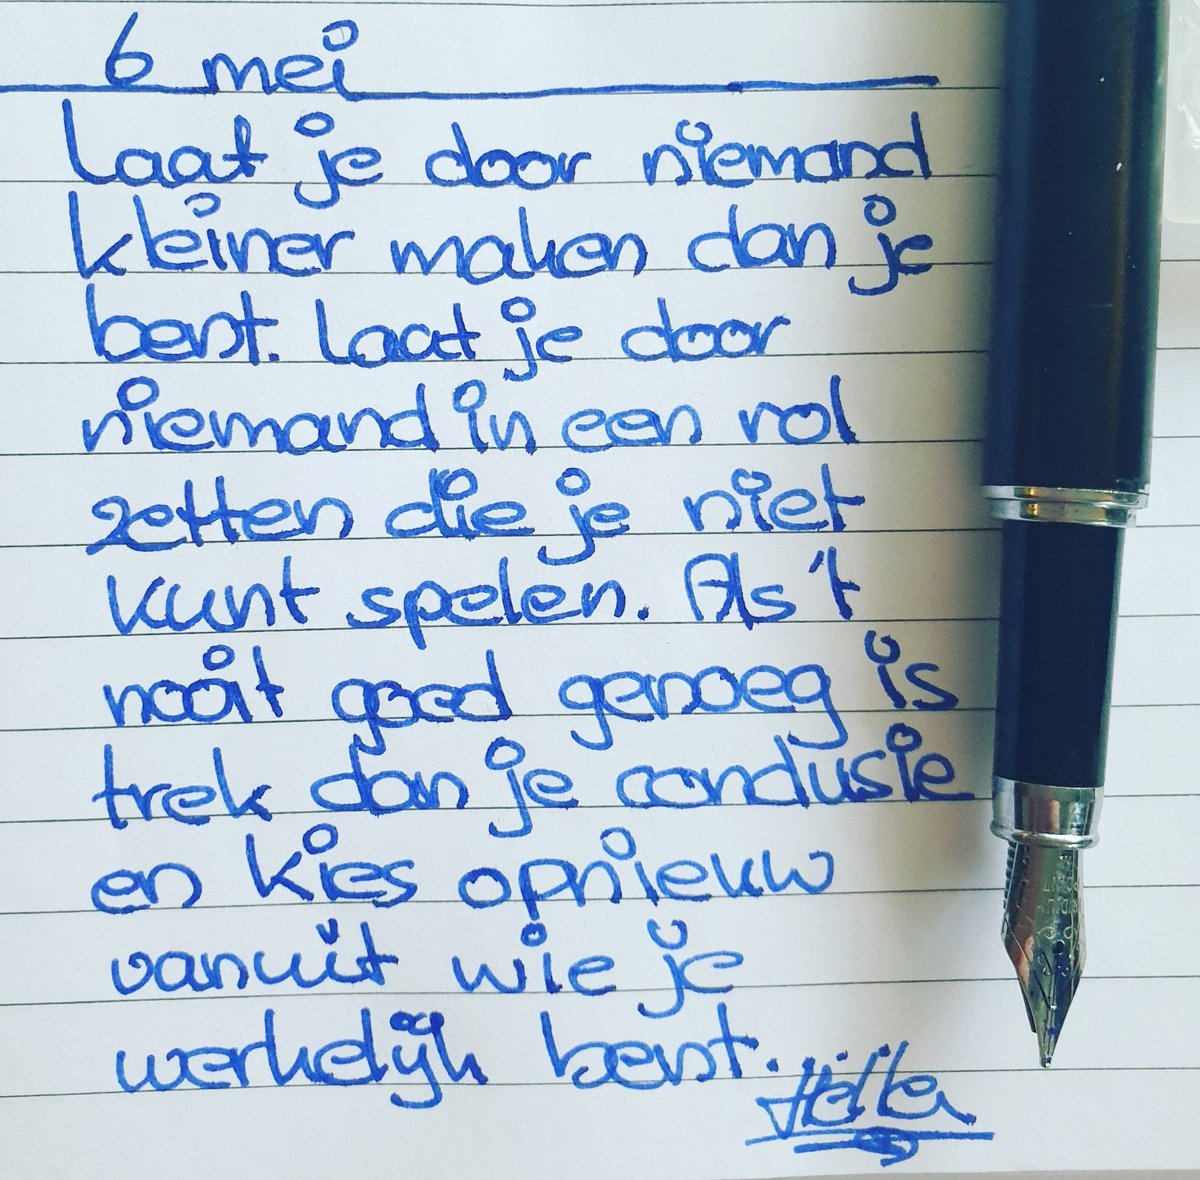 6 mei
Laat je door niemand
kleiner maken dan je
bent. Laat je door
niemand in een rol
zetten die je niet
kunt spelen. Als 't
nooit goed genoeg is
trek dan je conclusie
en kies opnieuw
vanuit wie je
werkelijk bent.